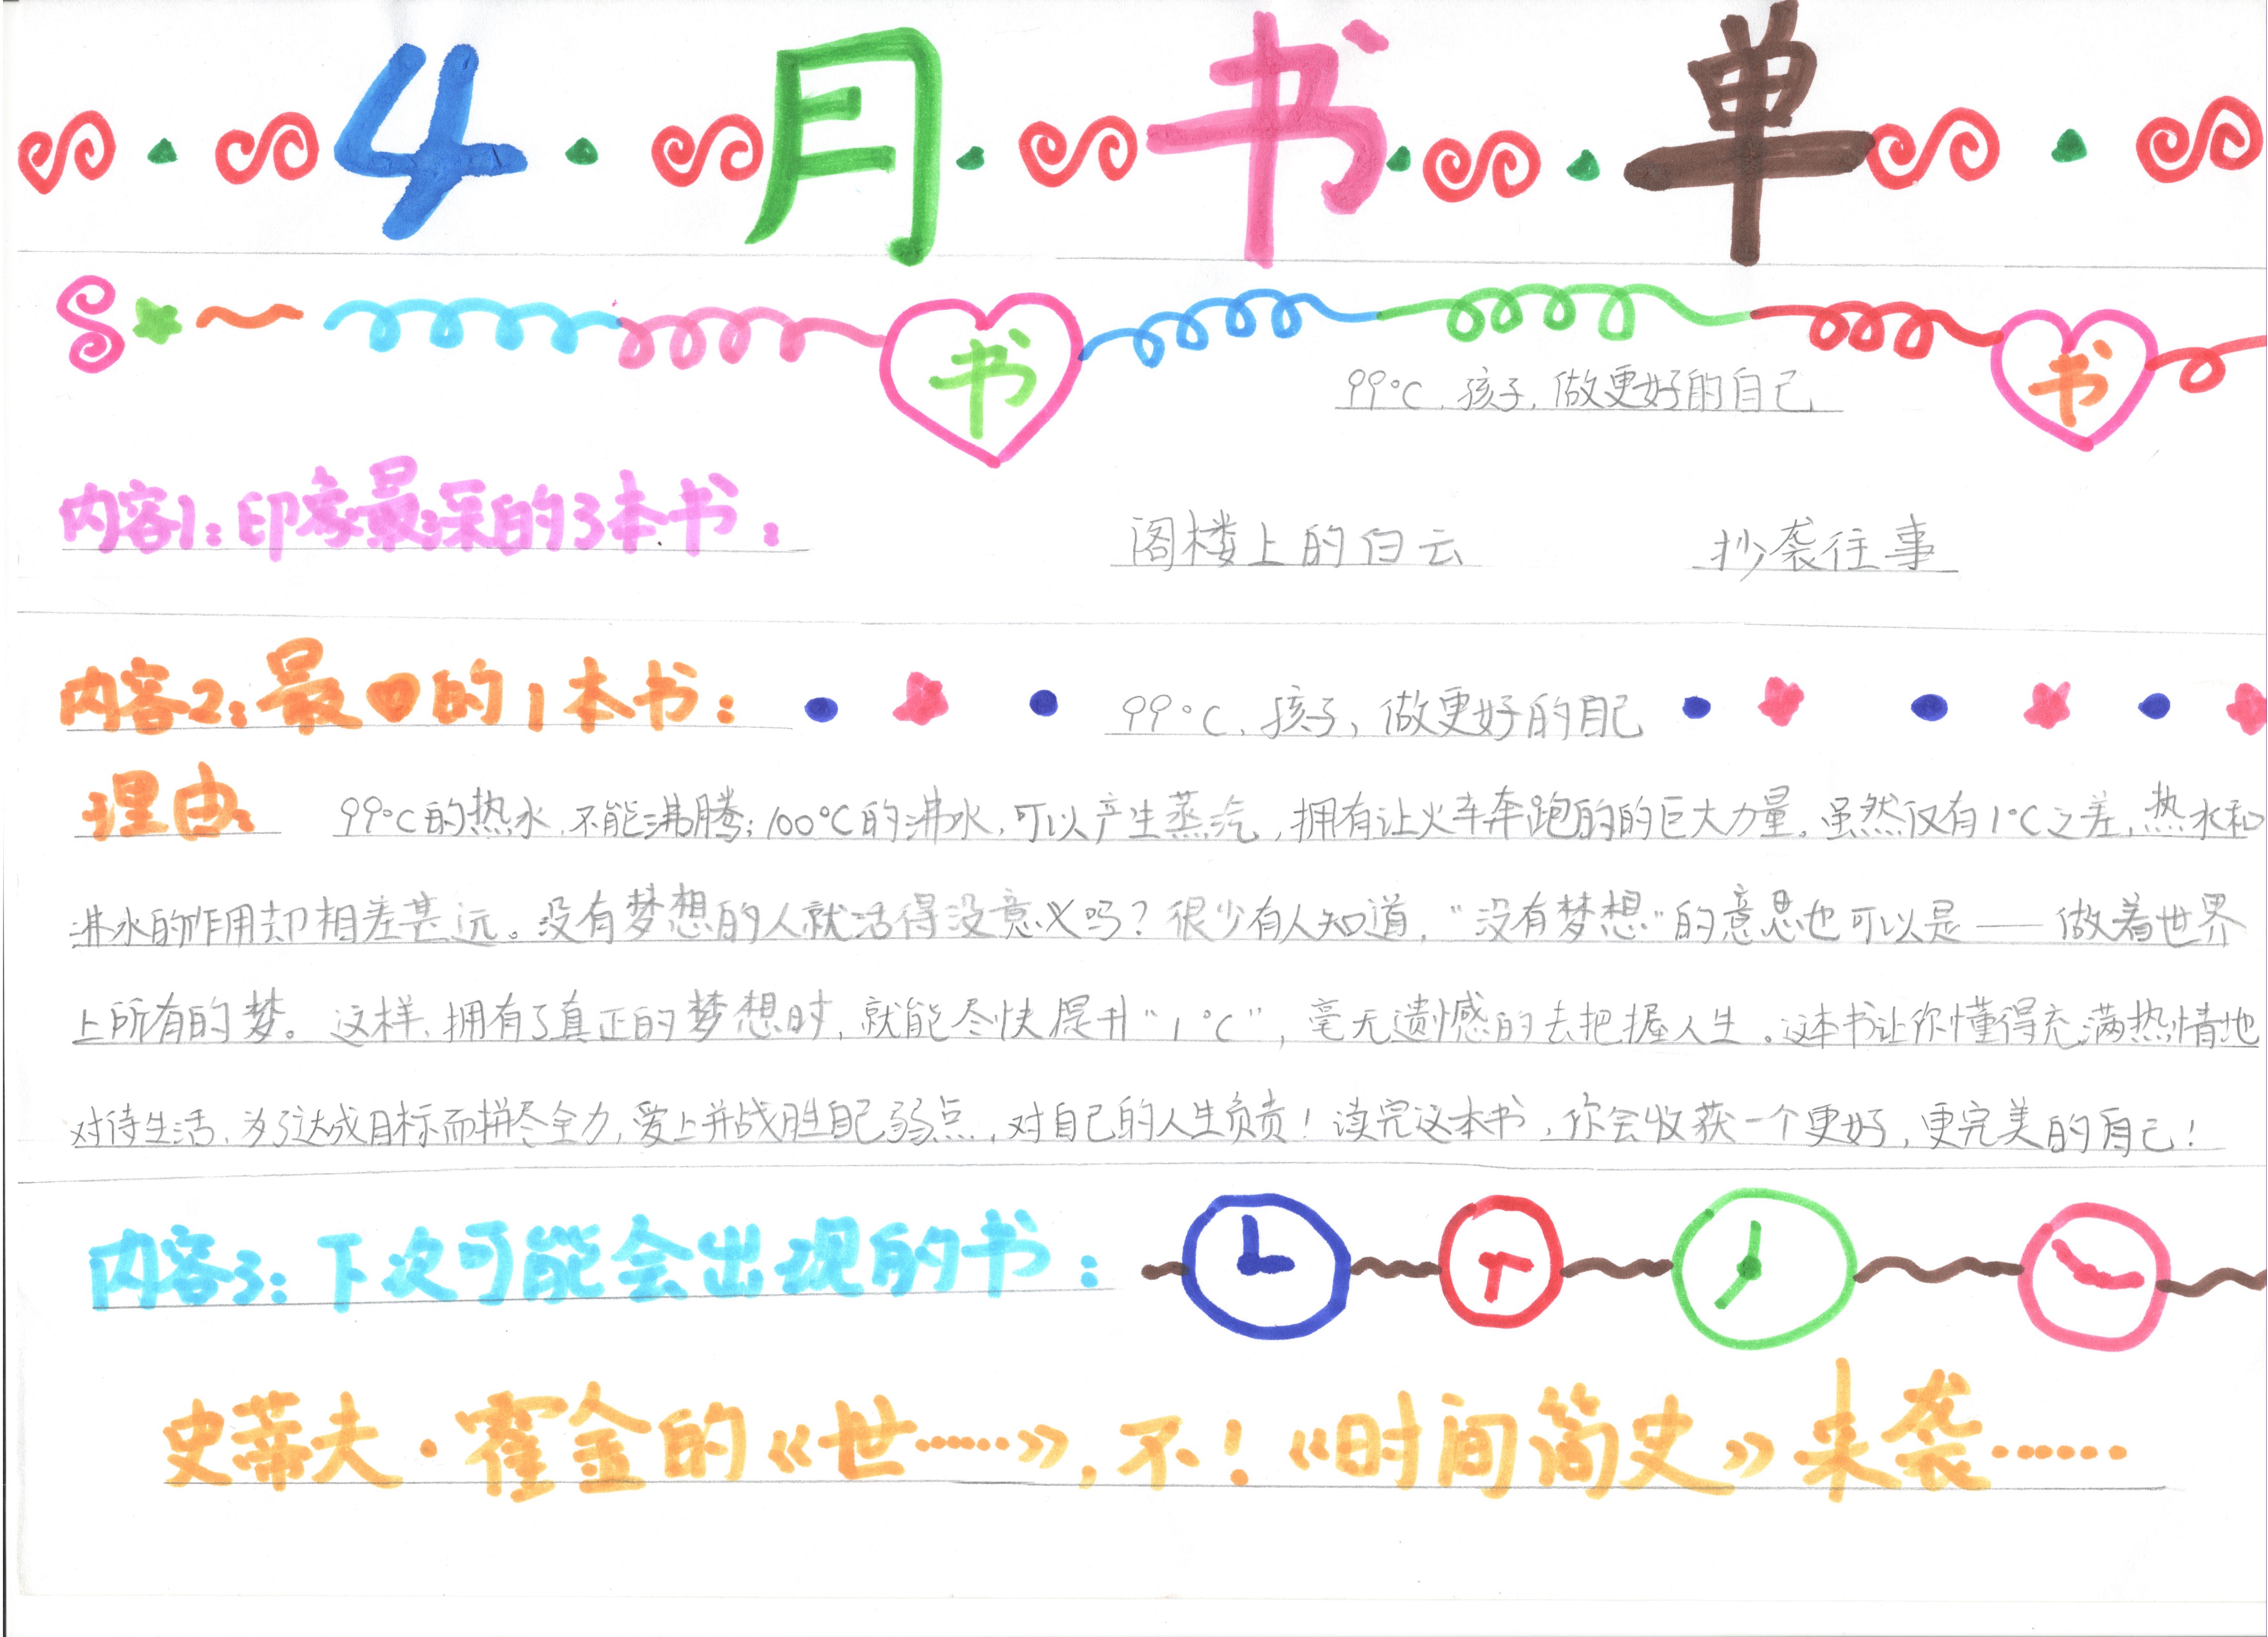 4月书单
书
书
99°C，孩子，做更好的自己
内容1：印象最深的3本书：
阁楼上的白云
抄袭往事
内容2：最♥的1本书：
99°C，孩子，做更好的自己
理由：
99°C的热水，不能沸腾；100°C的沸水，可以产生蒸汽，拥有让火车奔跑的的巨大力量。虽然仅有1°C之差，热水和
沸水的作用却相差甚远。没有梦想的人就活得没意义吗？很少有人知道，“没有梦想”的意思也可以是——做着世界
上所有的梦。这样，拥有了真正的梦想时，就能尽快提升“1°C”，毫无遗憾的去把握人生。这本书让你懂得充满热情地
对待生活、为了达成目标而拼尽全力，爱上并战胜自己弱点，对自己的人生负责！读完这本书，你会收获一个更好，更完美的自己！
内容3：下次可能会出现的书：
史蒂夫·霍金的《世……》，不！《时间简史》来袭……